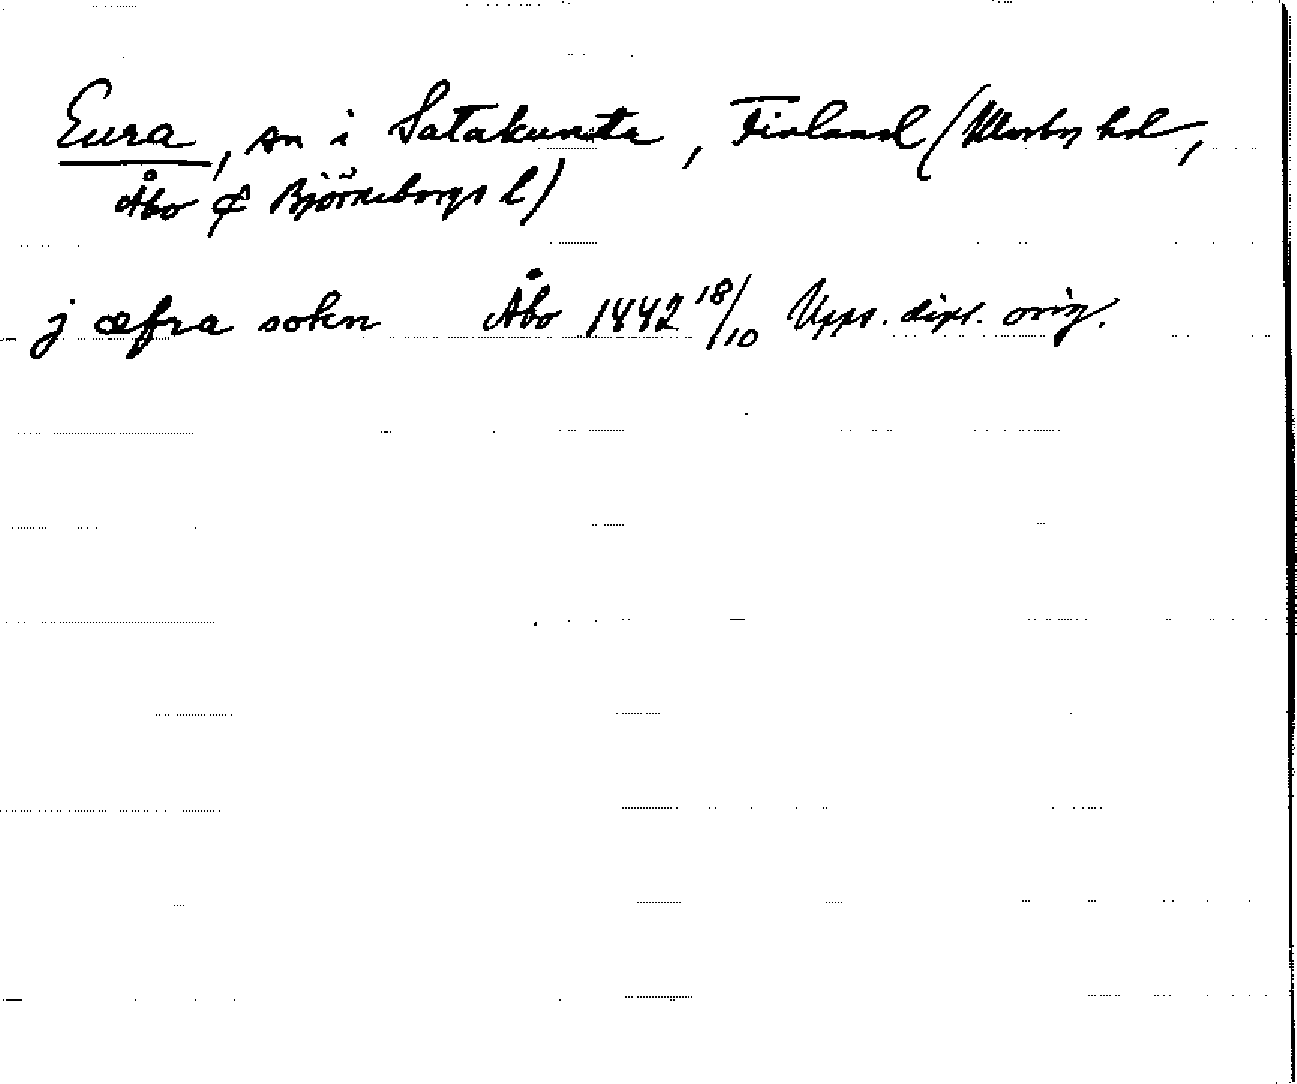 Eura, sn i Satakunta, Finland (Ulvsby hd,
Åbo & Björneborgs l)
j æfra sokn Åbo 1442 18/10 Upps. dipl. orig.